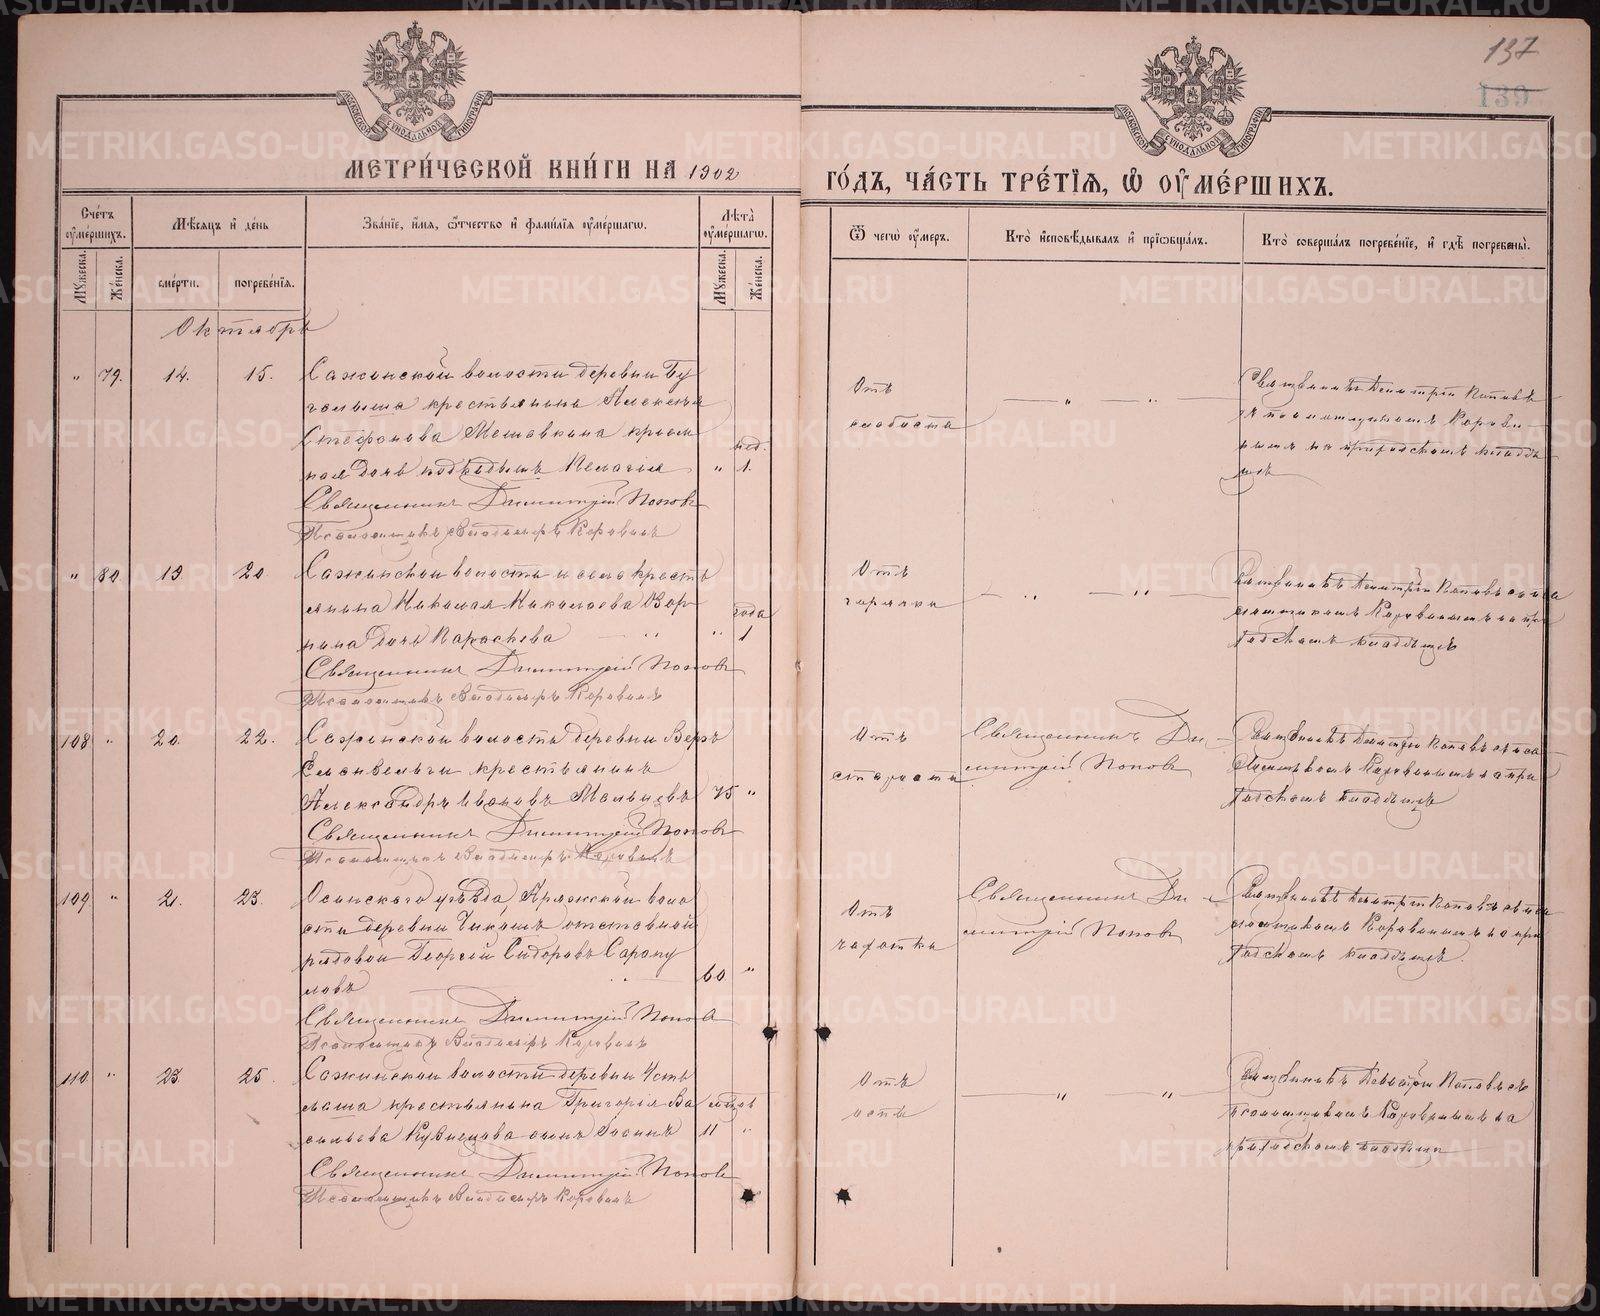 137
139
МОСКОВСКОЙ СѴНОДАЛЬНОЙ ТИПОГРАФІИ
МОСКОВСКОЙ СѴНОДАЛЬНОЙ ТИПОГРАФІИ
МЕТРИ́ЧЕСКОЙ КНИ́ГИ НА 1902
ГО́ДЪ, ЧА́СТЬ ТРЕ́ТІѦ, Ѡ҆ ОУ҆МЕ́РШИХЪ.
Сче́тъ оу҆ме́ршихъ.
Мꙋжеска.
Же́нска.
Мѣ́сяцъ и҆ де́нь
сме́рти.
погребе́нїѧ.
Зва́нїе, и҆́мѧ, ѻ҆́тчество и҆ фами́лїѧ оу҆ме́ршагѡ.
Лѣ́та оу҆ме́ршагѡ.
Мꙋжеска.
Же́нска.
Ѿ чегѡ̀ оу҆́меръ.
Кто̀ и҆сповѣ́дывалъ и҆ прїѡбща́лъ.
Кто̀ соверша́лъ погребе́нїе, и҆ гдѣ̀ погребены̀.
Октябрь
" 79. 14. 15. Сажинской волости деревни Бу
галыша крестьянина Алексея
Стефанова Мешавкина
ная дочь Пелагія " нед. 1.
Священникъ Димитрій Поповъ
Псаломщикъ Владиміръ Коровинъ
Отъ
слабости
— " — " —
Священникъ Димитрій Поповъ
съ псаломщикомъ Корови-
нымъ на приходскомъ кладб
ищѣ
" 80. 19. 20. Сажинской волости и села кресть
янина Николая Николаева
дочь Параскева — " " года 1
Священникъ Димитрій Поповъ
Псаломщикъ Владиміръ Коровинъ
Отъ
горячки
— " — " —
Священникъ Димитрій Поповъ съ пса
ломщикомъ Коровинымъ на при
ходскомъ кладбищѣ
108 " 20. 22. Сажинской волости деревни Верхъ
крестьянинъ
Александръ Ивановъ Мальцевъ 75 "
Священникъ Димитрій Поповъ
Псаломщикъ Владиміръ Коровинъ
Отъ
старости
Священникъ Ди-
митрій Поповъ
Священникъ Димитрій Поповъ съ пса
ломщикомъ Коровинымъ на при
ходскомъ кладбищѣ
109 " 21. 23. Осинскаго уѣзда, Аряжской воло
сти деревни отставной
рядовой Георгій Сидоровъ Сарапу
ловъ 60 "
Священникъ Димитрій Поповъ
Псаломщикъ Владиміръ Коровинъ
Отъ
чахотки
Священникъ Ди-
митрій Поповъ
Священникъ Димитрій Поповъ съ пса
ломщикомъ Коровинымъ на при
ходскомъ кладбищѣ.
110 " 23. 25. Сажинской волости деревни Усть
маша крестьянина Григорія Ва
сильева Кузнецова сынъ мѣсяц. 11 "
Священникъ Димитрій Поповъ
Псаломщикъ Владиміръ Коровинъ
Отъ
оспы
— " — " —
Священникъ Димитрій Поповъ съ
псаломщикомъ Коровинымъ на
приходскомъ кладбищѣ
METRIKI.GASO-URAL.RU